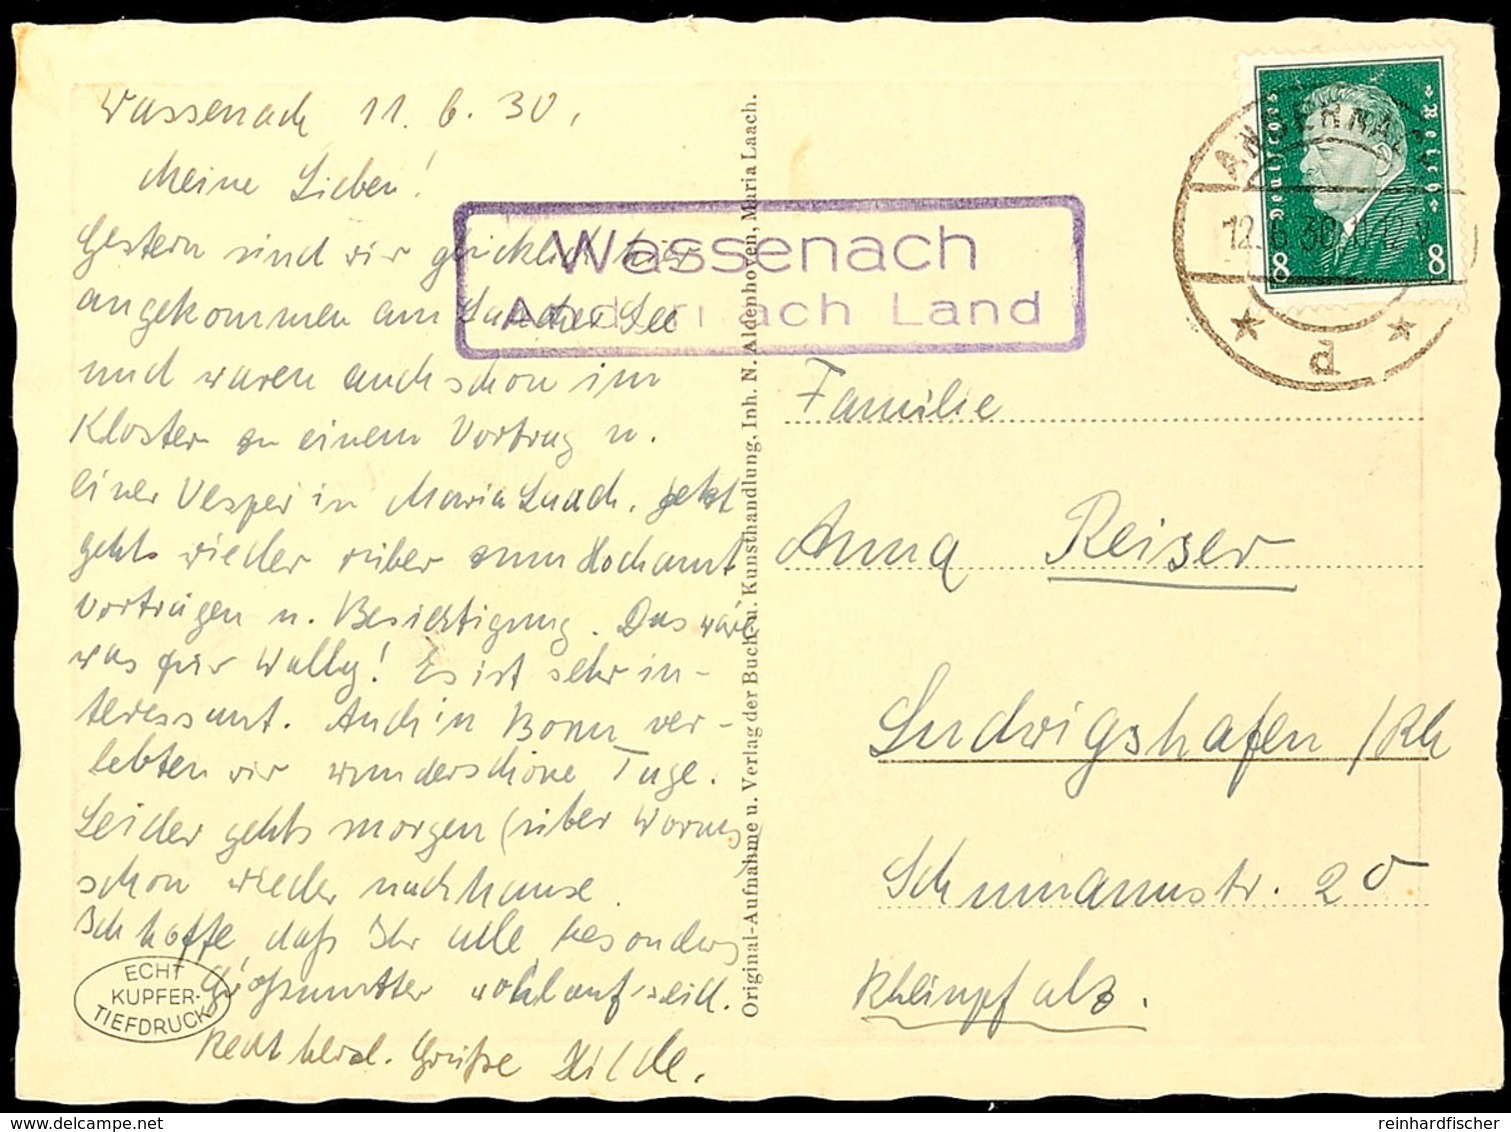 Wassenach 11. 6. 30.
Meine Lieben!
Gestern sind wir glücklich hier
angekommen am Laacher See
und waren auch schon im
Kloster zu einem Vortrag u.
einer Vesper in Maria Laach. Jetzt
gehts wieder rüber zum Hochamt
Vorträgen u. Besichtigung. Das wäre
was für Wally! Es ist sehr in-
teressant. Auch in Bonn ver-
lebten wir wunderschöne Tage.
Leider gehts morgen (über Worms)
schon wieder nachhause.
Ich hoffe, daß Ihr alle besonders
Großmutter wohlauf seid.
Recht herzl. Grüße Hilde.
ECHT
KUPFER-
TIEFDRUCK
Original-Aufnahme u. Verlag der Buch- u. Kunsthandlung, Inh. N. Aldenhoven, Maria Laach.
Wassenach
Andernach Land
Deutsches Reich
8 8
ANDERNACH
12.6.30
* d *
Familie
Anna Reiser
Ludwigshafen /Rh
Schumannstr. 20
Rheinpfalz.
delcampe.net
reinhardfischer